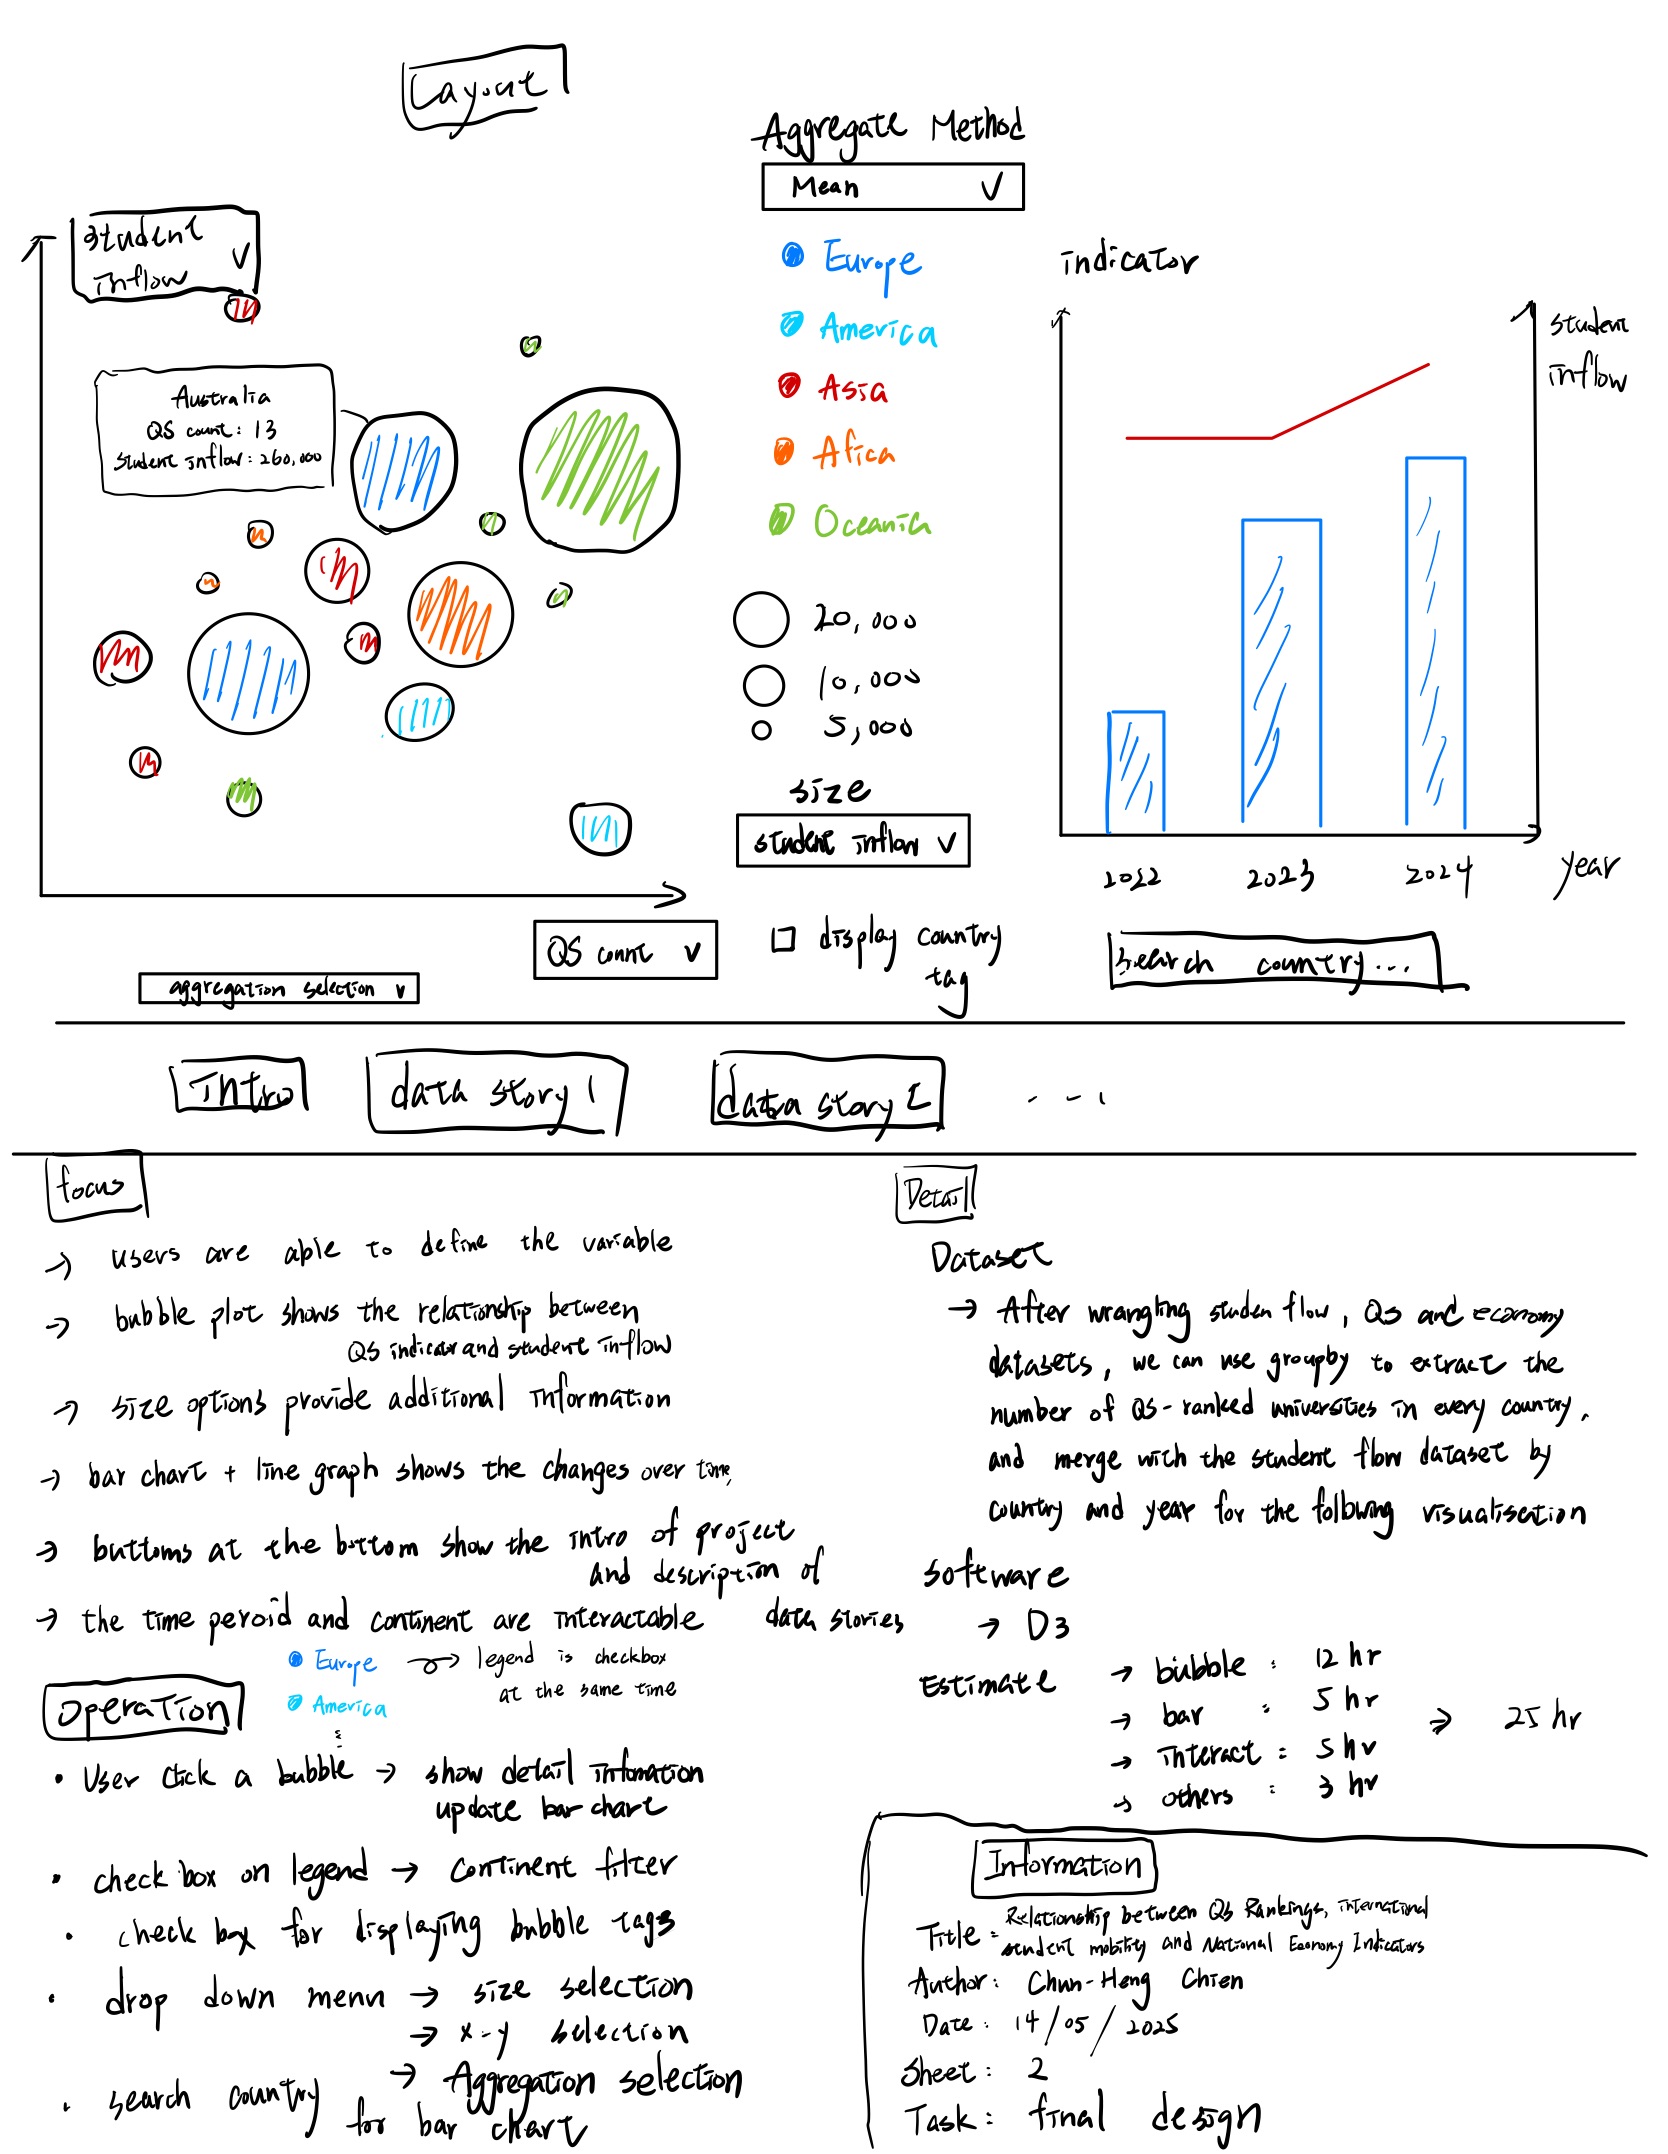 Layout
Aggregate Method
Mean
Student
inflow
Europe
America
Asia
Africa
Oceania
Australia
QS count: 13
Student inflow: 260,000
20,000
10,000
5,000
size
student inflow
display country
tag
QS count
aggregation selection
indicator
student
inflow
2022 2023 2024
year
Search country...
Intro
data story 1
data story 2
...
focus
→ users are able to define the variable
→ bubble plot shows the relationship between
QS indicator and student inflow
→ size options provide additional information
→ bar chart + line graph shows the changes over time
→ buttoms at the bottom show the intro of project
and description of
data stories
→ the time peroid and continent are interactable
Europe → legend is checkbox
at the same time
America
Operation
• User click a bubble → show detail infomation
update bar chart
• check box on legend → continent filter
• check box for displaying bubble tags
• drop down menu → size selection
→ x-y selection
→ Aggregation selection
• search country
for bar chart
Detail
Dataset
→ After wrangling studen flow, QS and economy
datasets, we can use groupby to extract the
number of QS-ranked universities in every country,
and merge with the student flow dataset by
country and year for the following visualisation
Software
→ D3
Estimate → bubble : 12 hr
→ bar : 5 hr
→ interact : 5 hr
→ others : 3 hr
⇒ 25 hr
Information
Title: Relationship between QS Rankings, international
student mobility and National Economy Indicators
Author: Chun-Heng Chien
Date: 14/05/2025
Sheet: 2
Task: final design